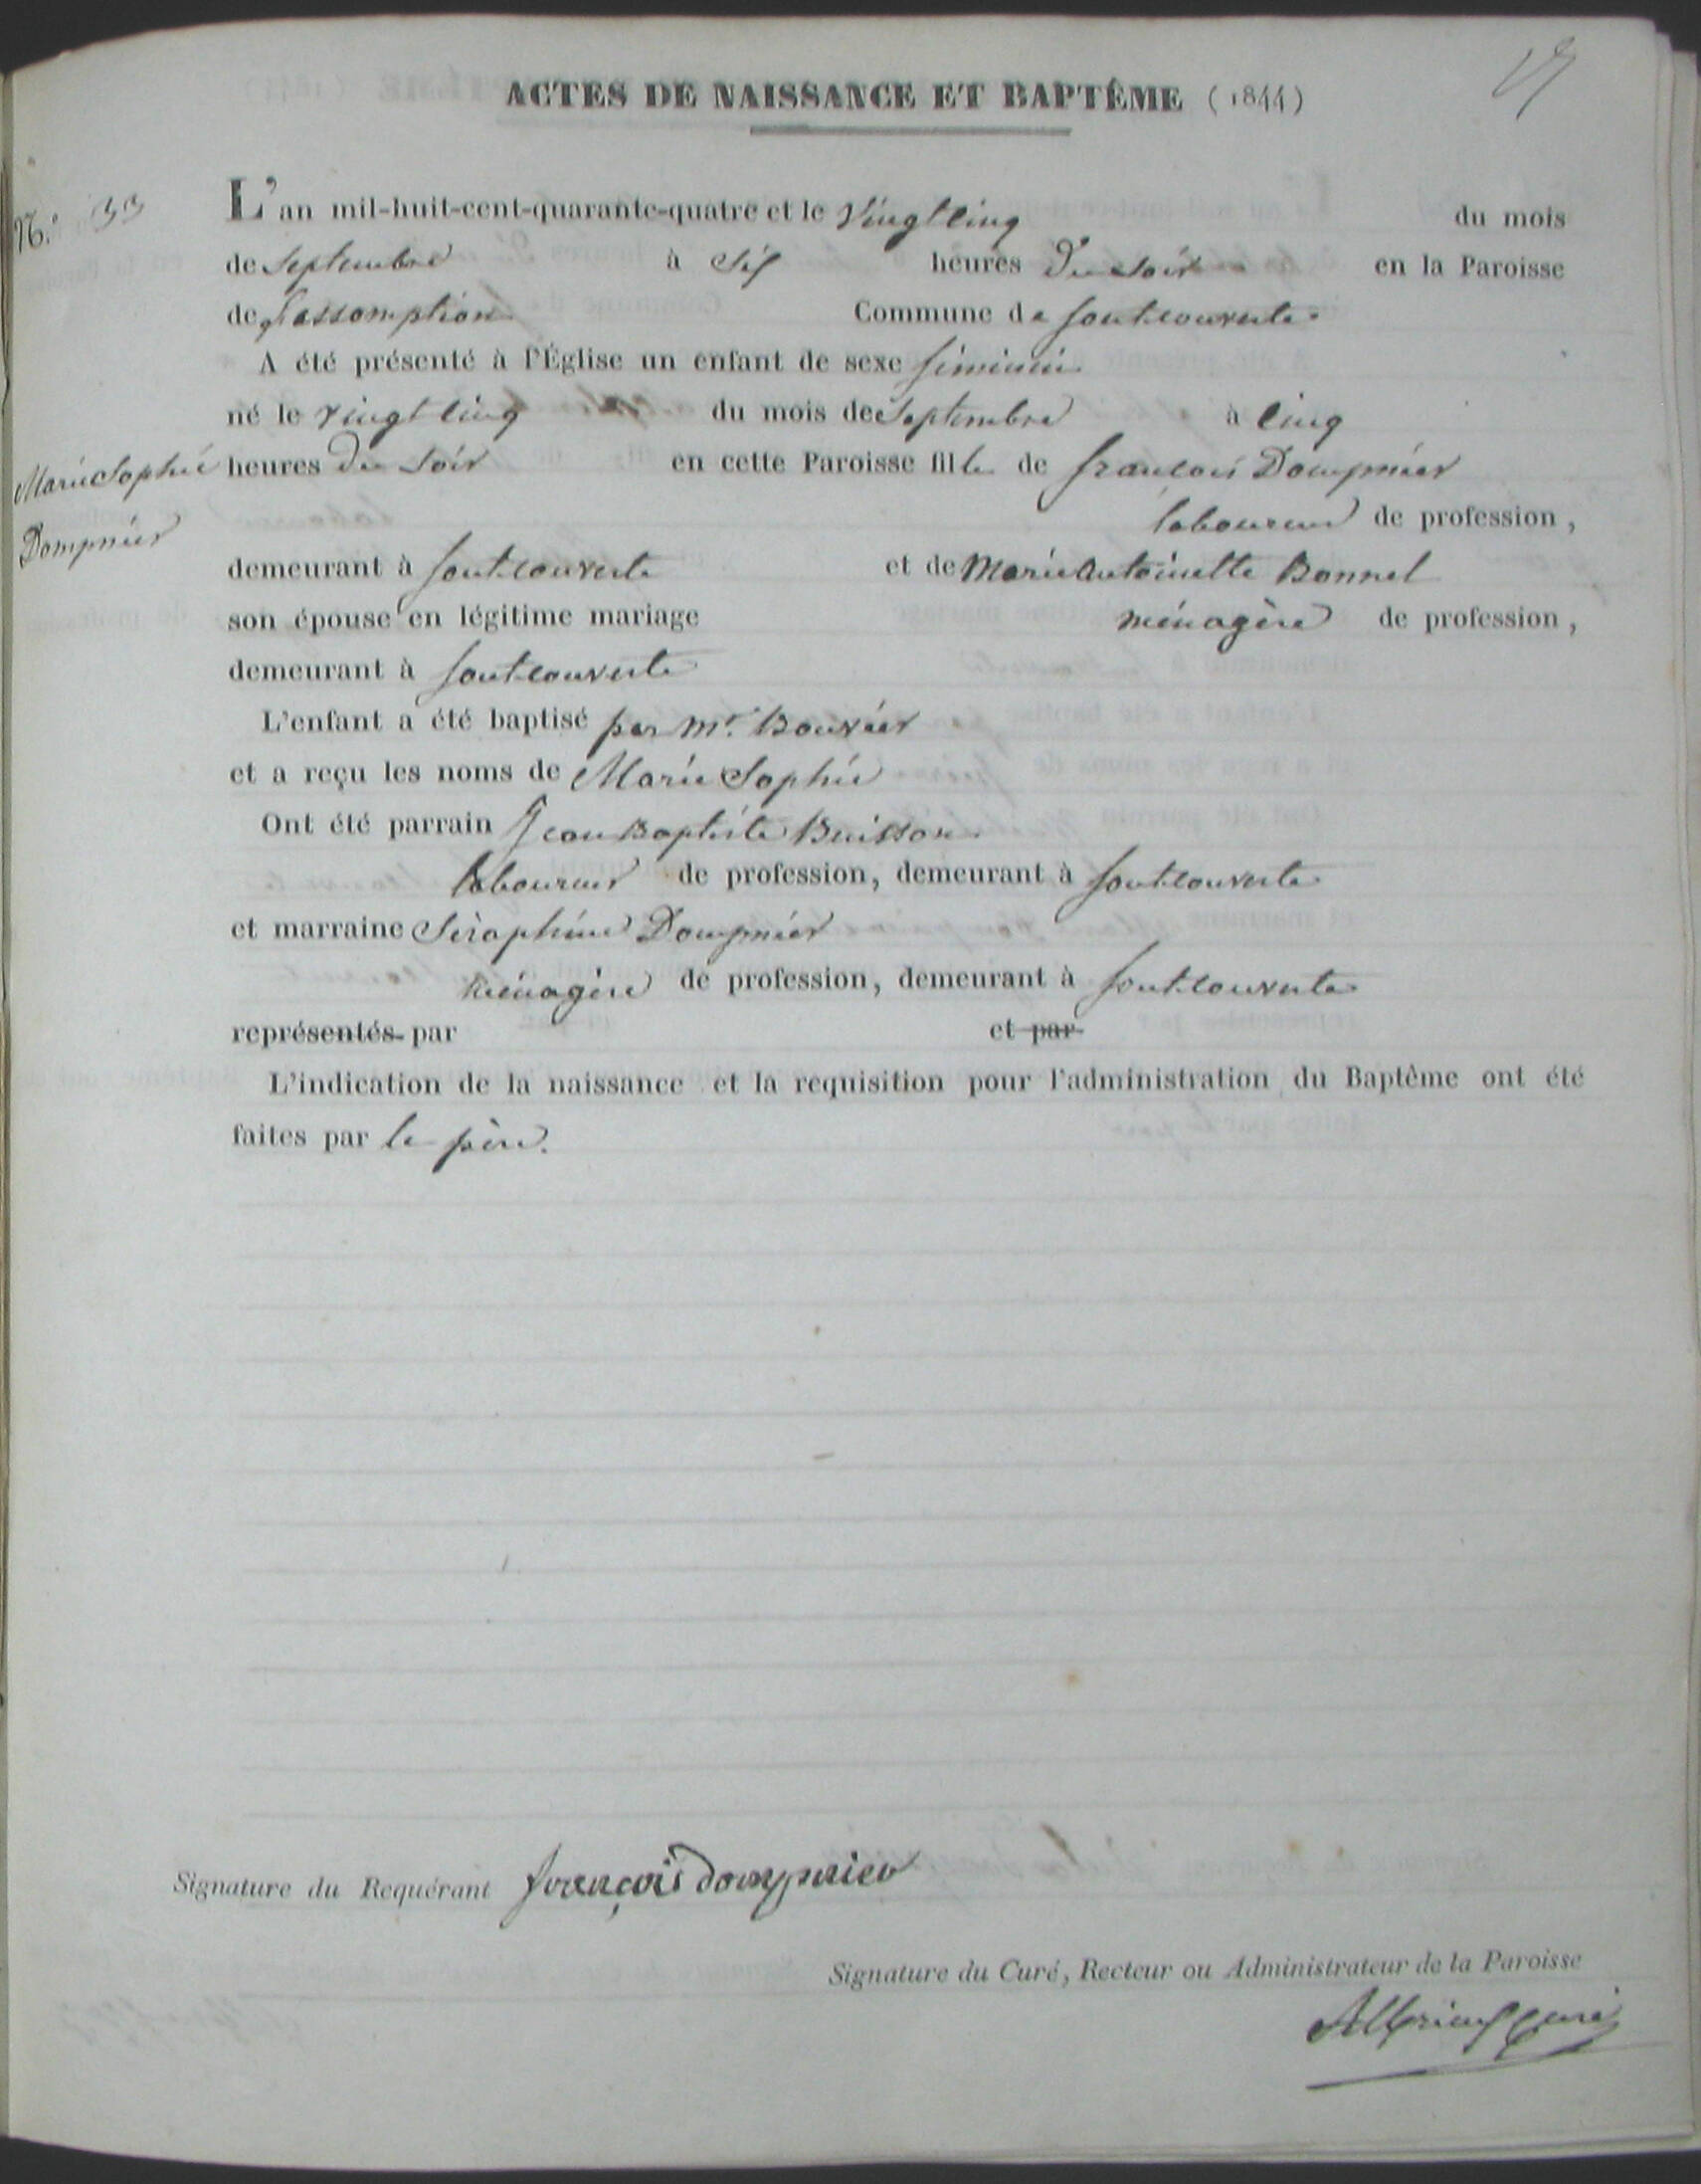 ACTES DE NAISSANCE ET BAPTÊME (1844)
N.° 33
L'an mil-huit-cent-quarante-quatre et le vingt cinq du mois
de Septembre à six heures du soir en la Paroisse
de L'assomption Commune de fontcouverte
A été présenté à l'Église un enfant de sexe féminin
né le vingt cinq du mois de Septembre à cinq
Marie Sophie
Dompnier
heures du soir en cette Paroisse fille de francois Dompnier
laboureur de profession,
demeurant à fontcouverte et de Marie Antoinette Bonnel
son épouse en légitime mariage ménagère de profession,
demeurant à fontcouverte
L'enfant a été baptisé par Mr. Bouvier
et a reçu les noms de Marie Sophie
Ont été parrain Jean Baptiste Buisson
laboureur de profession, demeurant à fontcouverte
et marraine Séraphine Dompnier
ménagère de profession, demeurant à fontcouverte
représentés par et par
L'indication de la naissance et la requisition pour l'administration du Baptême ont été
faites par le père.
Signature du Requérant françois dompnier
Signature du Curé, Recteur ou Administrateur de la Paroisse
curé